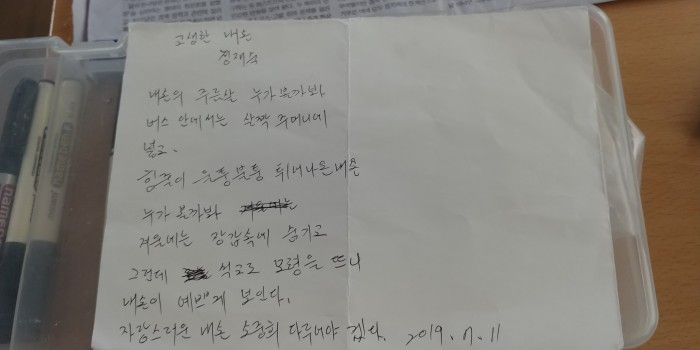 고생한 내손
정재숙
내손의 주름살 누가볼까봐
버스 안에서는 살짝 주머니에
넣고.
힘줄이 울퉁불퉁 튀어나온내손
누가 볼까봐
겨울에는 장갑속에 숨기고
그런데 석고로 모형을 뜨니
내손이 예쁘게 보인다.
자랑스러운 내손 소중희 다루어야 겠다. 2019. 7. 11